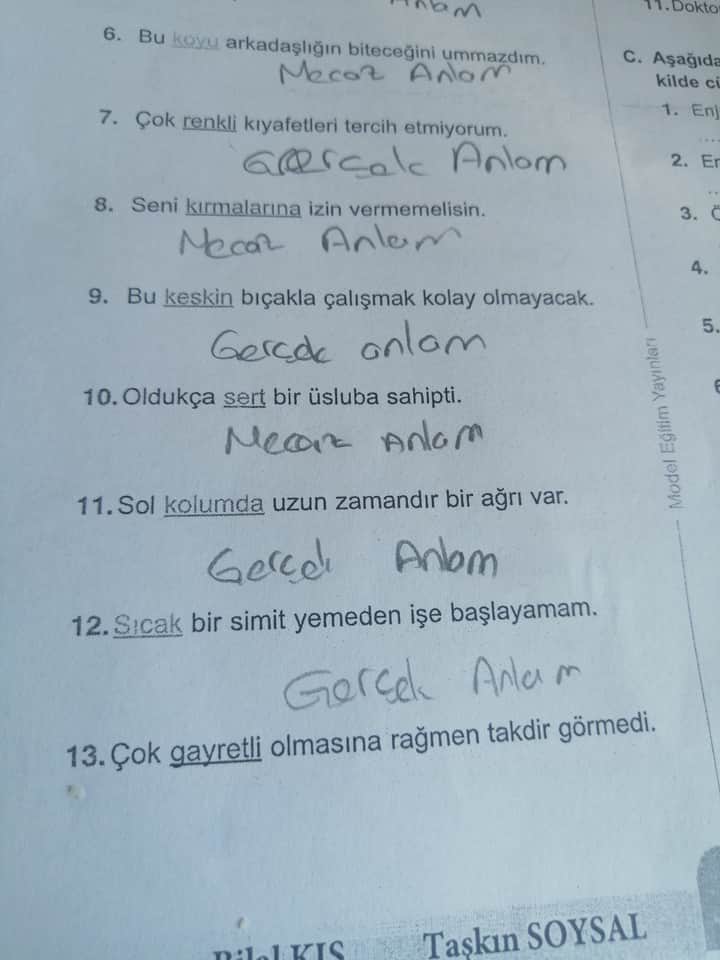 Anlam
11.Dokto
6. Bu koyu arkadaşlığın biteceğini ummazdım.
Mecaz Anlam
7. Çok renkli kıyafetleri tercih etmiyorum.
Gerçek Anlam
8. Seni kırmalarına izin vermemelisin.
Mecaz Anlam
9. Bu keskin bıçakla çalışmak kolay olmayacak.
Gerçek anlam
10. Oldukça sert bir üsluba sahipti.
Mecaz Anlam
11. Sol kolumda uzun zamandır bir ağrı var.
Gerçek Anlam
12. Sıcak bir simit yemeden işe başlayamam.
Gerçek Anlam
13. Çok gayretli olmasına rağmen takdir görmedi.
C. Aşağıda
kilde ci
1. Enj
2. Er
3.
4.
5.
Model Eğitim Yayınları
Bilal KIŞ
Taşkın SOYSAL